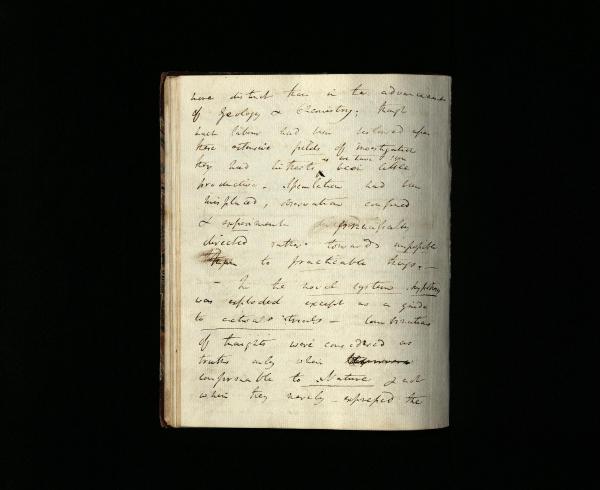 more distinct than in the advancement
of Geology & Chemistry; though
much labour had been bestowed upon
these extensive fields of investigation
as we have seen
they had hitherto been little
productive. Speculation had been
misplaced, observation confined
& experiments principally
directed rather towards impossible
than to practicable things. —
— In the novel systems hypothesis
was exploded except as a guide
to actual trials — Combinations
of thoughts were considered as
truths only when
conformable to Nature & not
when they merely expressed the